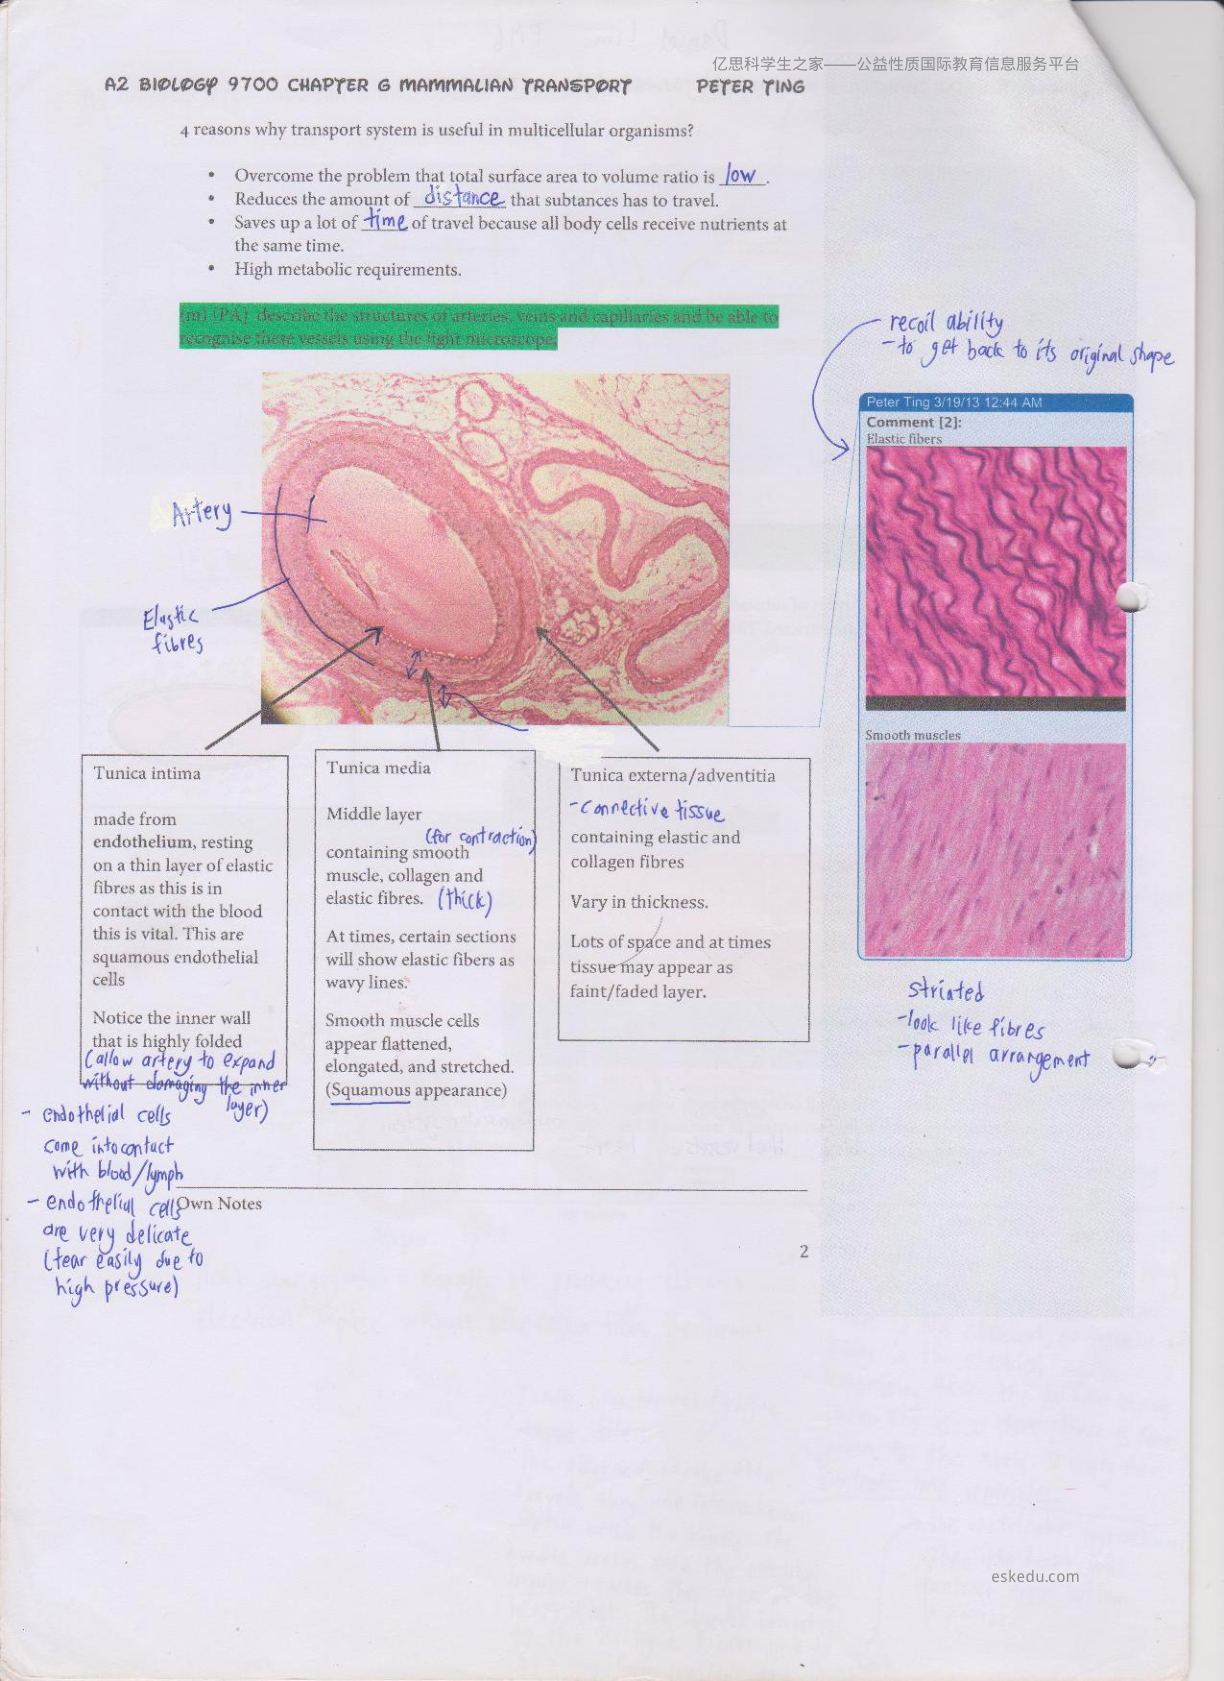 亿思科学生之家——公益性质国际教育信息服务平台
A2 BIOLOGY 9700 CHAPTER 6 MAMMALIAN TRANSPORT PETER TING
4 reasons why transport system is useful in multicellular organisms?
• Overcome the problem that total surface area to volume ratio is low.
• Reduces the amount of distance that subtances has to travel.
• Saves up a lot of time of travel because all body cells receive nutrients at
the same time.
• High metabolic requirements.
(m) [PA] describe the structures of arteries, veins and capillaries and be able to
recognise these vessels using the light microscope;
recoil ability
- to get back to its original shape
Peter Ting 3/19/13 12:44 AM
Comment [2]:
Elastic fibers
Artery
Elastic
fibres
Smooth muscles
Tunica intima
made from
endothelium, resting
on a thin layer of elastic
fibres as this is in
contact with the blood
this is vital. This are
squamous endothelial
cells
Notice the inner wall
that is highly folded
(allow artery to expand
without damaging the inner
layer)
- endothelial cells
come into contact
with blood/lymph
- endothelial cells
are very delicate
(tear easily due to
high pressure)
Tunica media
Middle layer
(for contraction)
containing smooth
muscle, collagen and
elastic fibres. (thick)
At times, certain sections
will show elastic fibers as
wavy lines.
Smooth muscle cells
appear flattened,
elongated, and stretched.
(Squamous appearance)
Tunica externa/adventitia
- connective tissue
containing elastic and
collagen fibres
Vary in thickness.
Lots of space and at times
tissue may appear as
faint/faded layer.
striated
- look like fibres
- parallel arrangement
Own Notes
2
eskedu.com